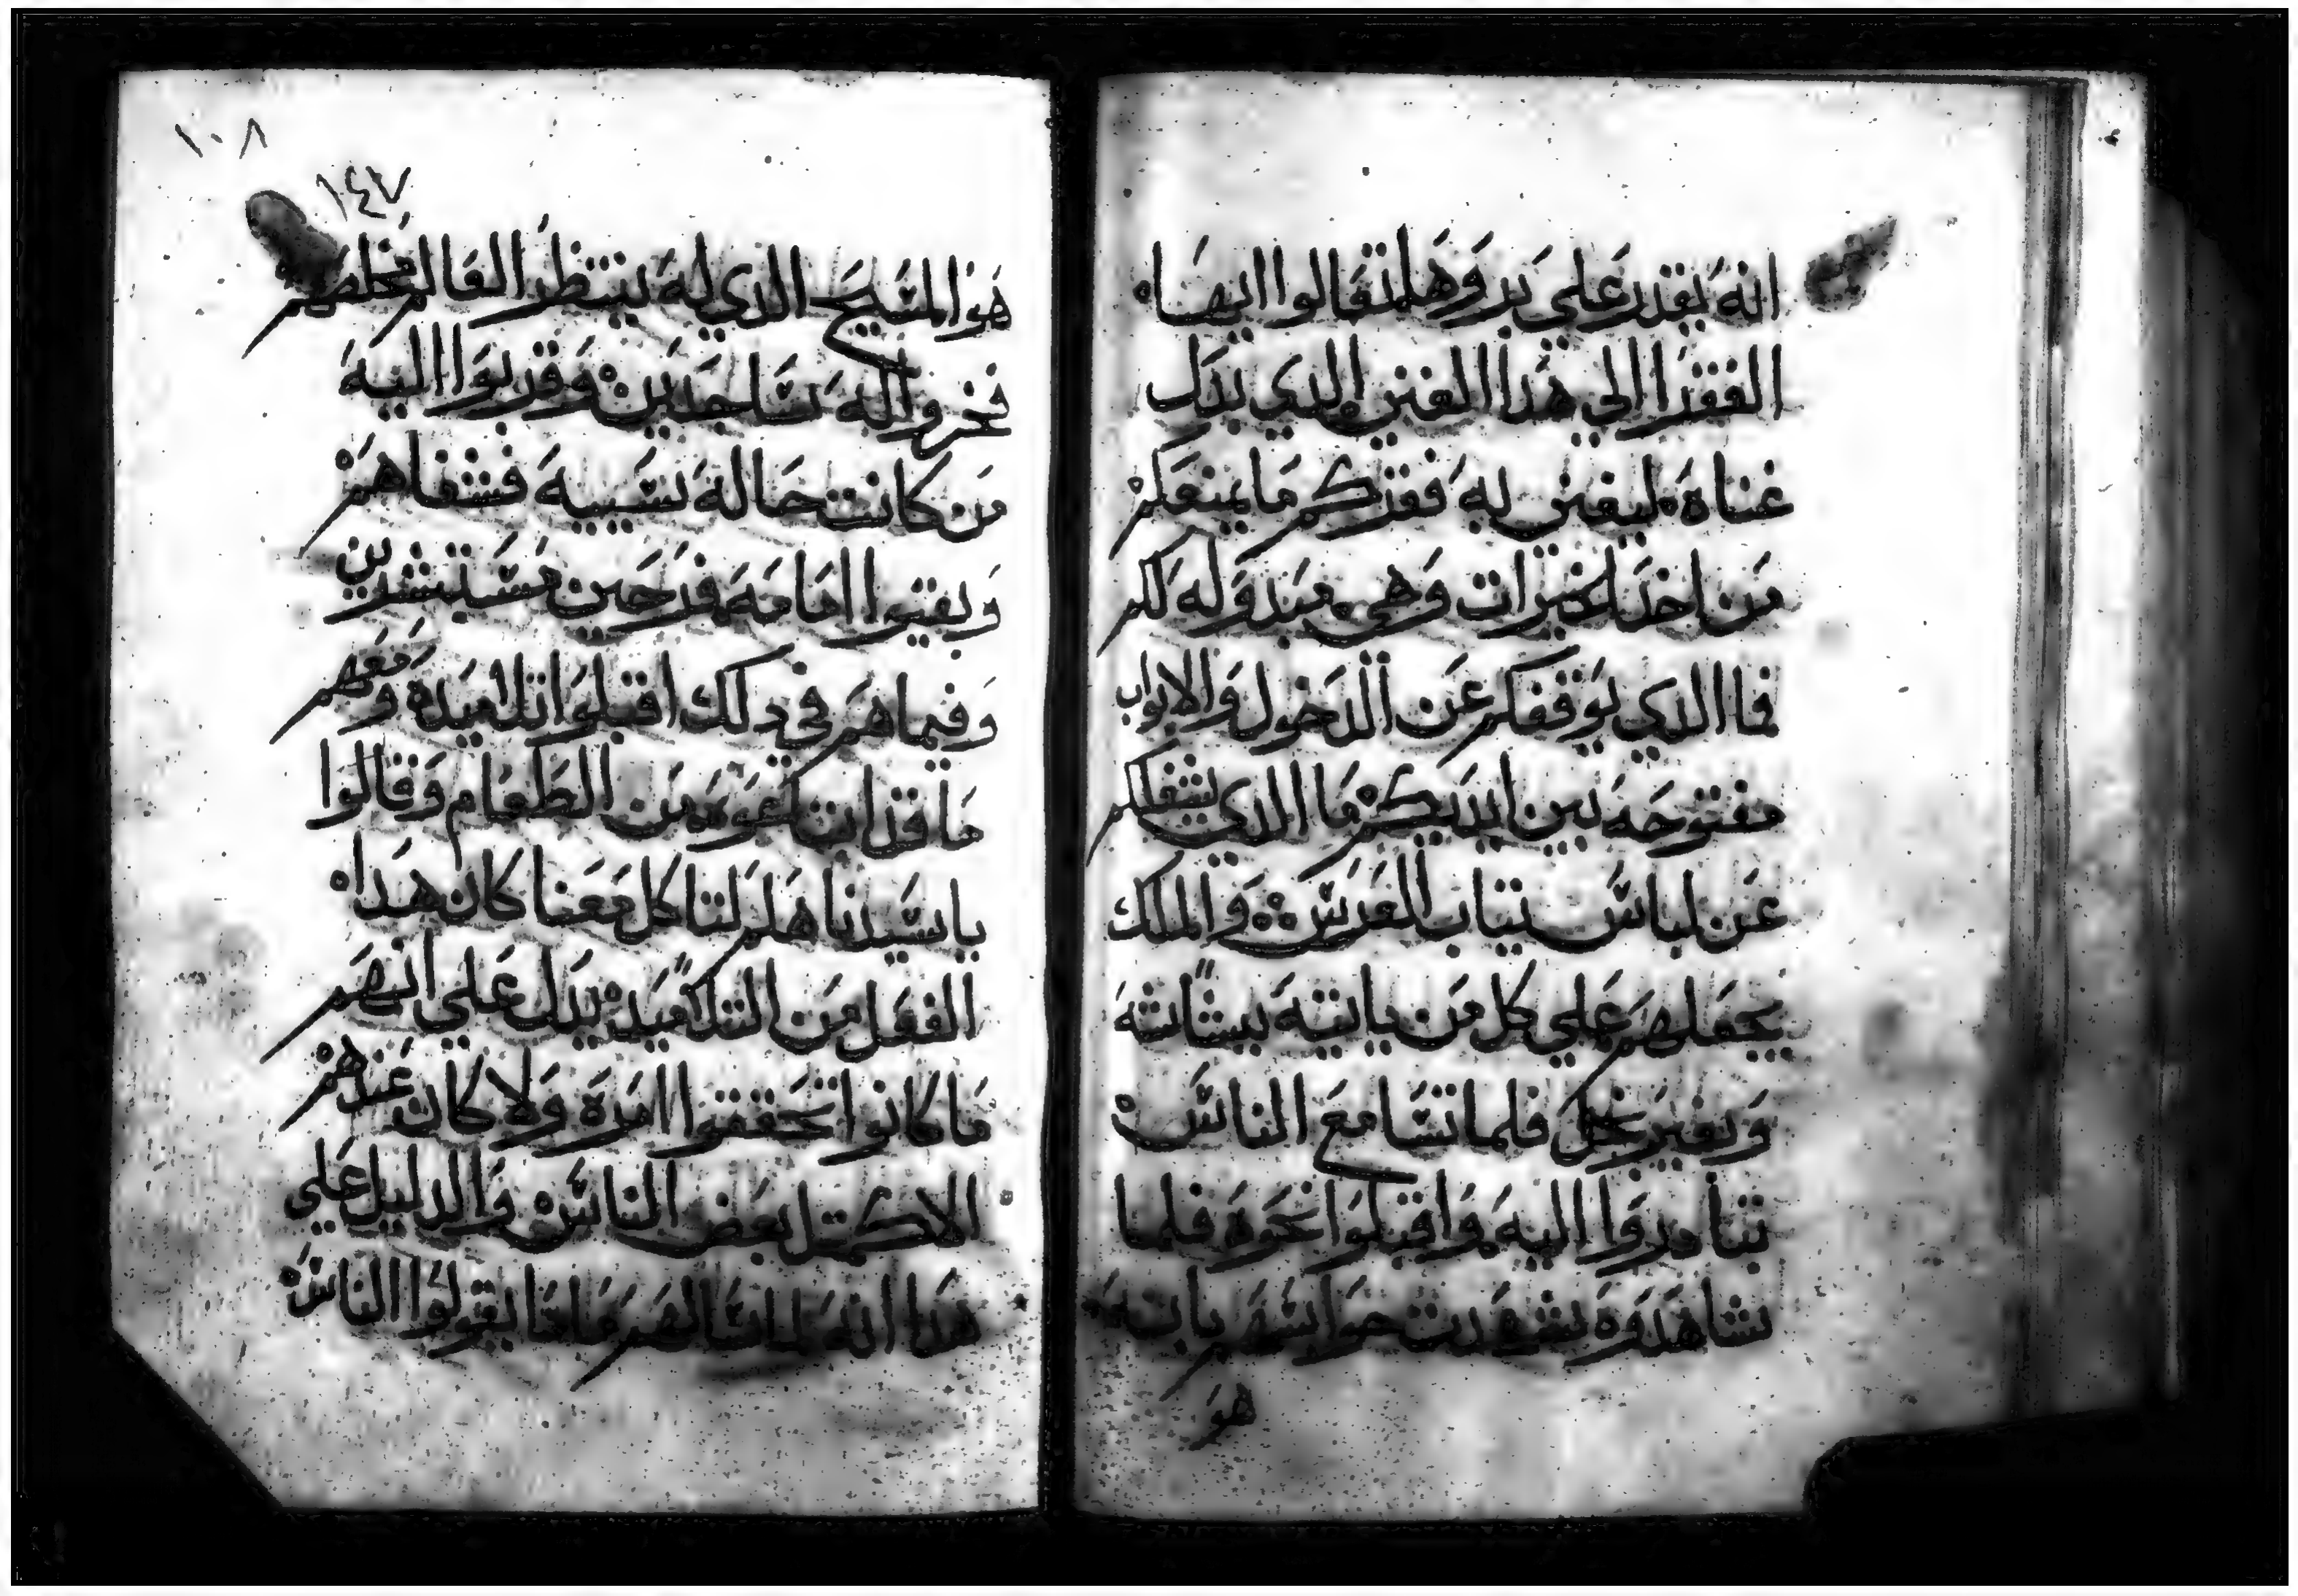 انه يقدر على بر وهلم تقالوا ايها
الفقرا الى هدا الغني الدي بدل
غناه ليغني به فقركم ما يمنعكم
من اخد الخيرات وهي مبدوله لكم
فما الدي يوقفكم عن الدخول والابواب
مفتوحه بين ايديكم ما الدي يثقلكم
عن لباس تياب العرس والملك
يحملهم علي كل من ياتيه ببشاشه
وبغير بخل فلما تسامع الناس
تبادروا اليه واقبلوا نحوه فلما
شاهدوه شهدت حواسهم بانه
هو
١٠٨
١٤٧
هو المسيح الدي له ينتظر العالم مخلصهم
فخروا له ساجدين وقربوا اليه
من كانت حاله سييه فشفاهم
وبقيوا امامه فرحين مستبشرين
وفيما هم في دلك اقبلوا تلاميده ومعهم
ما قد ابتاعوه من الطعام وقالوا
يا سيدنا هلم لتاكل معنا كان هدا
الفعل من التلاميد يدل علي انهم
ما كانوا تحققوا امره ولا كان عندهم
الا كمتل بعض الناس والدليل علي
هدا انه لما سالهم ما دا يقولوا الناس